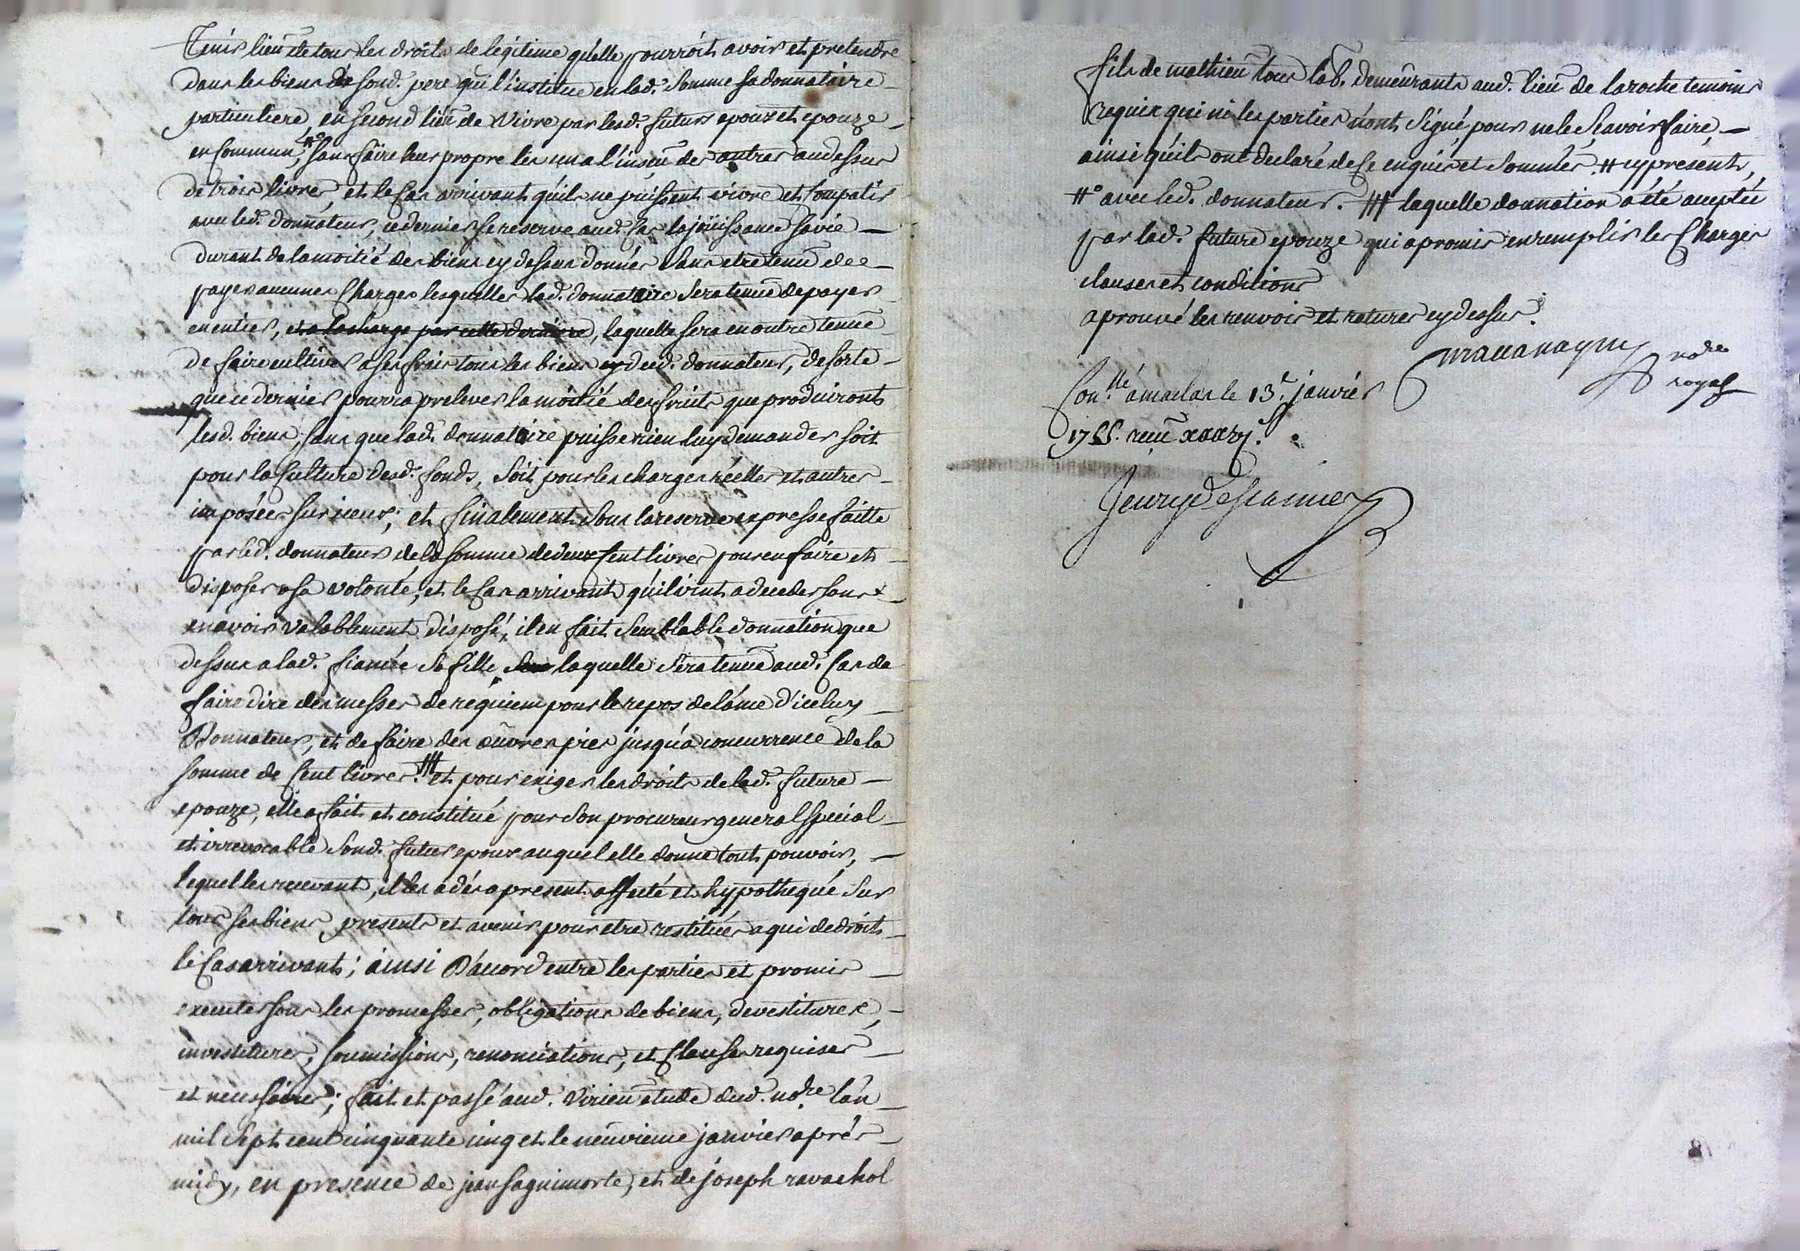 Tenir lieu de tous les droits de legitime qu'elle pourroit avoir et pretendre
dans les biens de sond. pere qui l'institue en lad. somme sa donnataire
particuliere, en second lieu de vivre par lesd. futurs epoux et epouze
en commun, #° sans faire leur propre les uns a l'insçu des autres audessus
de trois livres, et le cas arrivant qu'ils ne puissent vivre et compatir
avec led. donnateur, ce dernier se reserve aud. cas la joüissance sa vie
durant de la moitié des biens cy dessus donnés sans etre tenu de
payer aucunes charges lesquelles lad. donnataire sera tenue de payer
en entier, et a la charge par cette derniere, laquelle sera en outre tenue
de faire cultiver a ses frais tous les biens dud. donnateur, de sorte
que ce dernier pourra prelever la moitié des fruits que produiront
lesd. biens, sans que lad. donnataire puisse rien luy demander soit
pour la culture desd. fonds, soit pour les charges réelles et autres
imposées sur iceux; et finalement sous la reserve expresse faitte
par led. donnateur de la somme de deux cent livres pour en faire et
disposer a sa volonté, et le cas arrivant qu'il vint a deceder sans
en avoir valablement disposé, il en fait semblable donnation que
dessus a lad. fiancée sa fille, laquelle sera tenue aud. cas de
faire dire des messes de requiem pour le repos de l'ame d'iceluy
Donnateur, et de faire des œuvres pies jusqu'a concurrence de la
somme de cent livres. ### et pour exiger les droits de lad. future
epouze, elle a fait et constitué pour son procureur general special
et irrevocable sond. futur epoux auquel elle donne tout pouvoir,
lequel les recevant, il les a dés a present affecté et hypothequé sur
tous ses biens, presents et avenir pour etre restitués a qui de droit
le cas arrivant; ainsi d'accord entre les parties et promis
executer sous les promesses, obligations de biens, devestitures,
investitures, soumissions, renonciations, et clauses requises
et necessaires; fait et passé aud. virieu etude dud. no.re l'an
mil sept cent cinquante cinq et le neuvieme janvier aprés
midy, en presence de jean faguimorte, et de joseph ravachol
fils de mathieu tous lab. demeurants aud. lieu de laroche temoins
requis qui ni les parties n'ont signé pour ne le sçavoir faire,
ainsi qu'ils ont declaré de ce enquis et sommés. # cy presents,
#° avec led. donnateur. ### laquelle donnation a été acceptée
par lad. future epouze qui a promis en remplir les charges
clauses et conditions
aprouvé les renvois et ratures cy dessus.
no.re
royal
Con.llé a maclas le 13.e janvier
1755. reçu